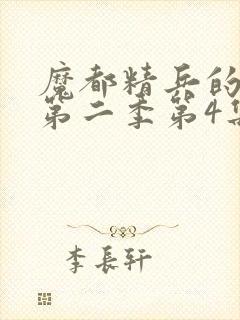 魔都精兵的
第二季第4集
李長軒